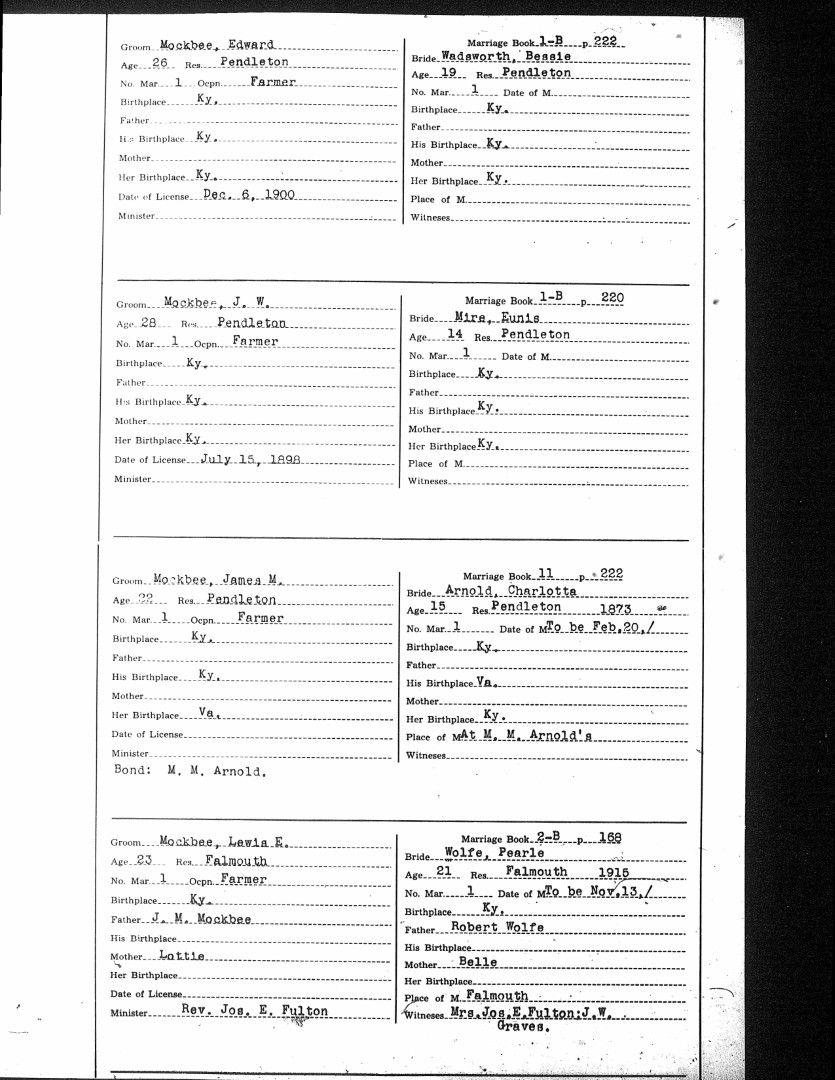 Groom Mockbee, Edward
Age 26 Res. Pendleton
No. Mar. 1 Ocpn. Farmer
Birthplace Ky.
Father
His Birthplace Ky.
Mother
Her Birthplace Ky.
Date of License Dec. 6, 1900
Minister
Marriage Book 1-B p. 222
Bride Wadsworth, Bessie
Age 19 Res. Pendleton
No. Mar. 1 Date of M.
Birthplace Ky.
Father
His Birthplace Ky.
Mother
Her Birthplace Ky.
Place of M.
Witneses
Groom Mockbee, J. W.
Age 28 Res. Pendleton
No. Mar. 1 Ocpn. Farmer
Birthplace Ky.
Father
His Birthplace Ky.
Mother
Her Birthplace Ky.
Date of License July 15, 1898
Minister
Marriage Book 1-B p 220
Bride Mire, Eunis
Age 14 Res. Pendleton
No. Mar. 1 Date of M.
Birthplace Ky.
Father
His Birthplace Ky.
Mother
Her Birthplace Ky.
Place of M.
Witneses
Groom Mockbee, James M.
Age 22 Res. Pendleton
No. Mar. 1 Ocpn. Farmer
Birthplace Ky.
Father
His Birthplace Ky.
Mother
Her Birthplace Va.
Date of License
Minister
Bond: M. M. Arnold.
Marriage Book 11 p. 222
Bride Arnold, Charlotta
Age 15 Res. Pendleton 1873
No. Mar. 1 Date of M To be Feb.20,/
Birthplace Ky.
Father
His Birthplace Va.
Mother
Her Birthplace Ky.
Place of M At M. M. Arnold's
Witneses
Groom Mockbee, Lewis E.
Age 23 Res. Falmouth
No. Mar. 1 Ocpn. Farmer
Birthplace Ky.
Father J. M. Mockbee
His Birthplace
Mother Lottie
Her Birthplace
Date of License
Minister Rev. Jos. E. Fulton
Marriage Book 2-B p. 168
Bride Wolfe, Pearle
Age 21 Res. Falmouth 1915
No. Mar. 1 Date of M To be Nov.13,/
Birthplace Ky.
Father Robert Wolfe
His Birthplace
Mother Belle
Her Birthplace
Place of M. Falmouth
Witneses Mrs.Jos.E.Fulton;J.W.
Graves.